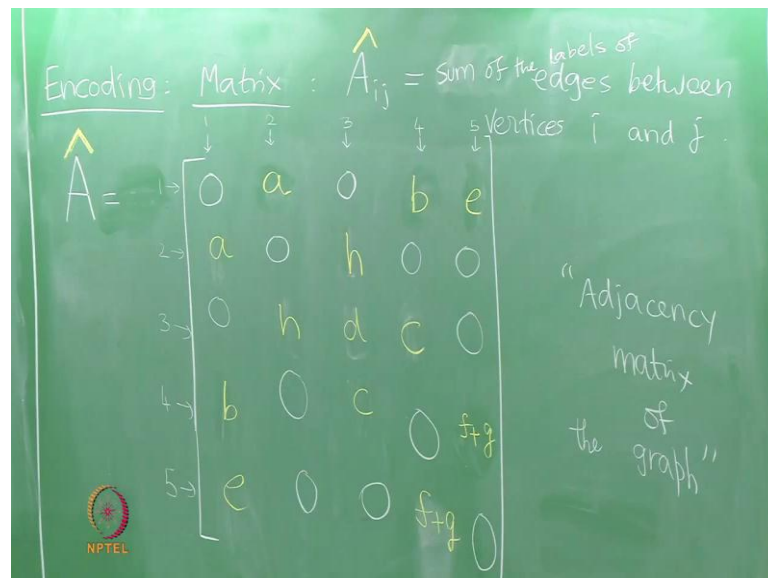 Encoding: Matrix : Âij = sum of the labels of edges between
vertices i and j.
1 2 3 4 5
↓ ↓ ↓ ↓ ↓
Â =
1→ 0 a 0 b e
2→ a 0 h 0 0
3→ 0 h d c 0
4→ b 0 c 0 f+g
5→ e 0 0 f+g 0
"Adjacency
matrix
of
the graph"
NPTEL